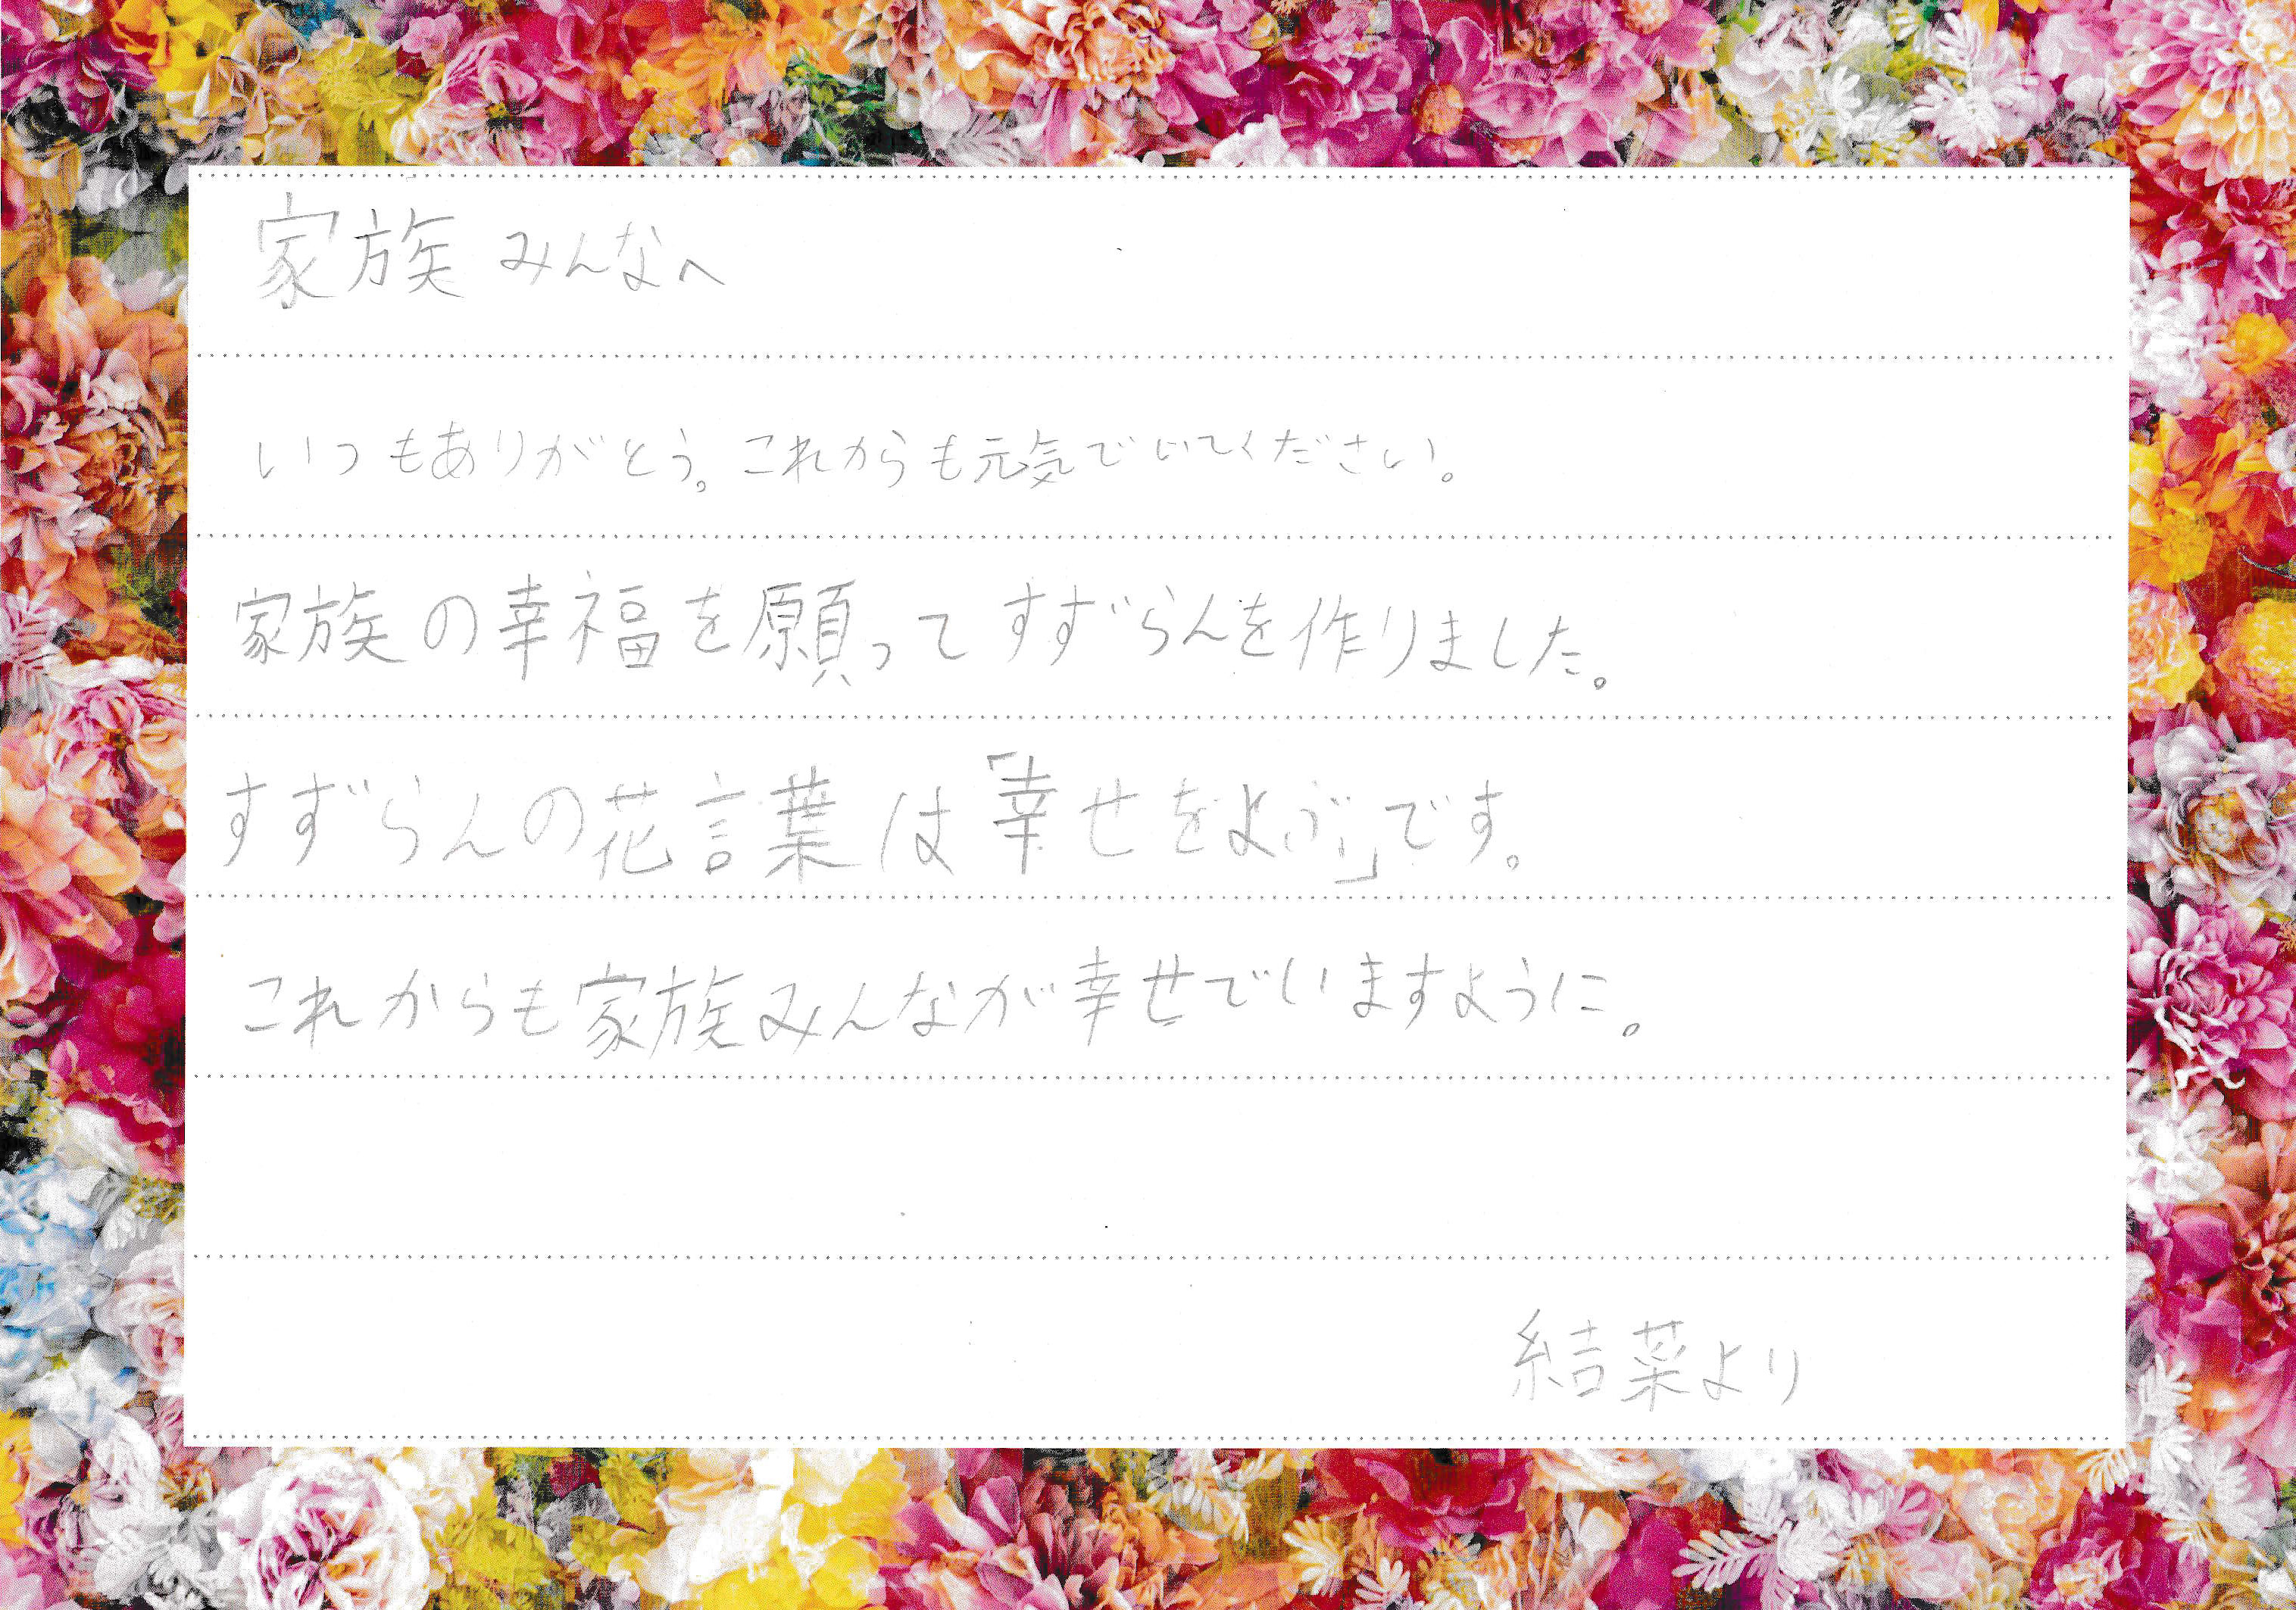 家族みんなへ
いつもありがとう。これからも元気でいてください。
家族の幸福を願ってすずらんを作りました。
すずらんの花言葉は「幸せをよぶ」です。
これからも家族みんなが幸せでいますように。
結菜より